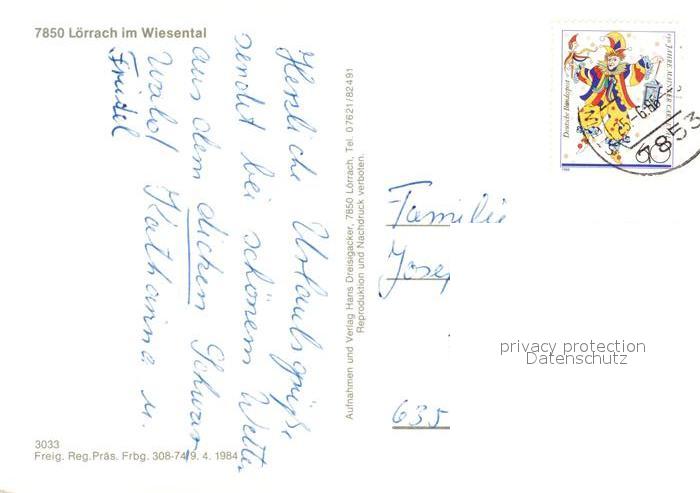 7850 Lörrach im Wiesental
Herzliche Urlaubsgrüße
sendet bei schönem Wetter
aus dem dicken Schwarz
wald Katharina u.
Friedel
3033
Freig. Reg.Präs. Frbg. 308-74/9. 4. 1984
Aufnahmen und Verlag Hans Dreisigacker, 7850 Lörrach, Tel. 07621/82491
Reproduktion und Nachdruck verboten.
Deutsche Bundespost
150 JAHRE MAINZER CARNEVAL
60
1988
Familie
Josef
635
privacy protection
Datenschutz